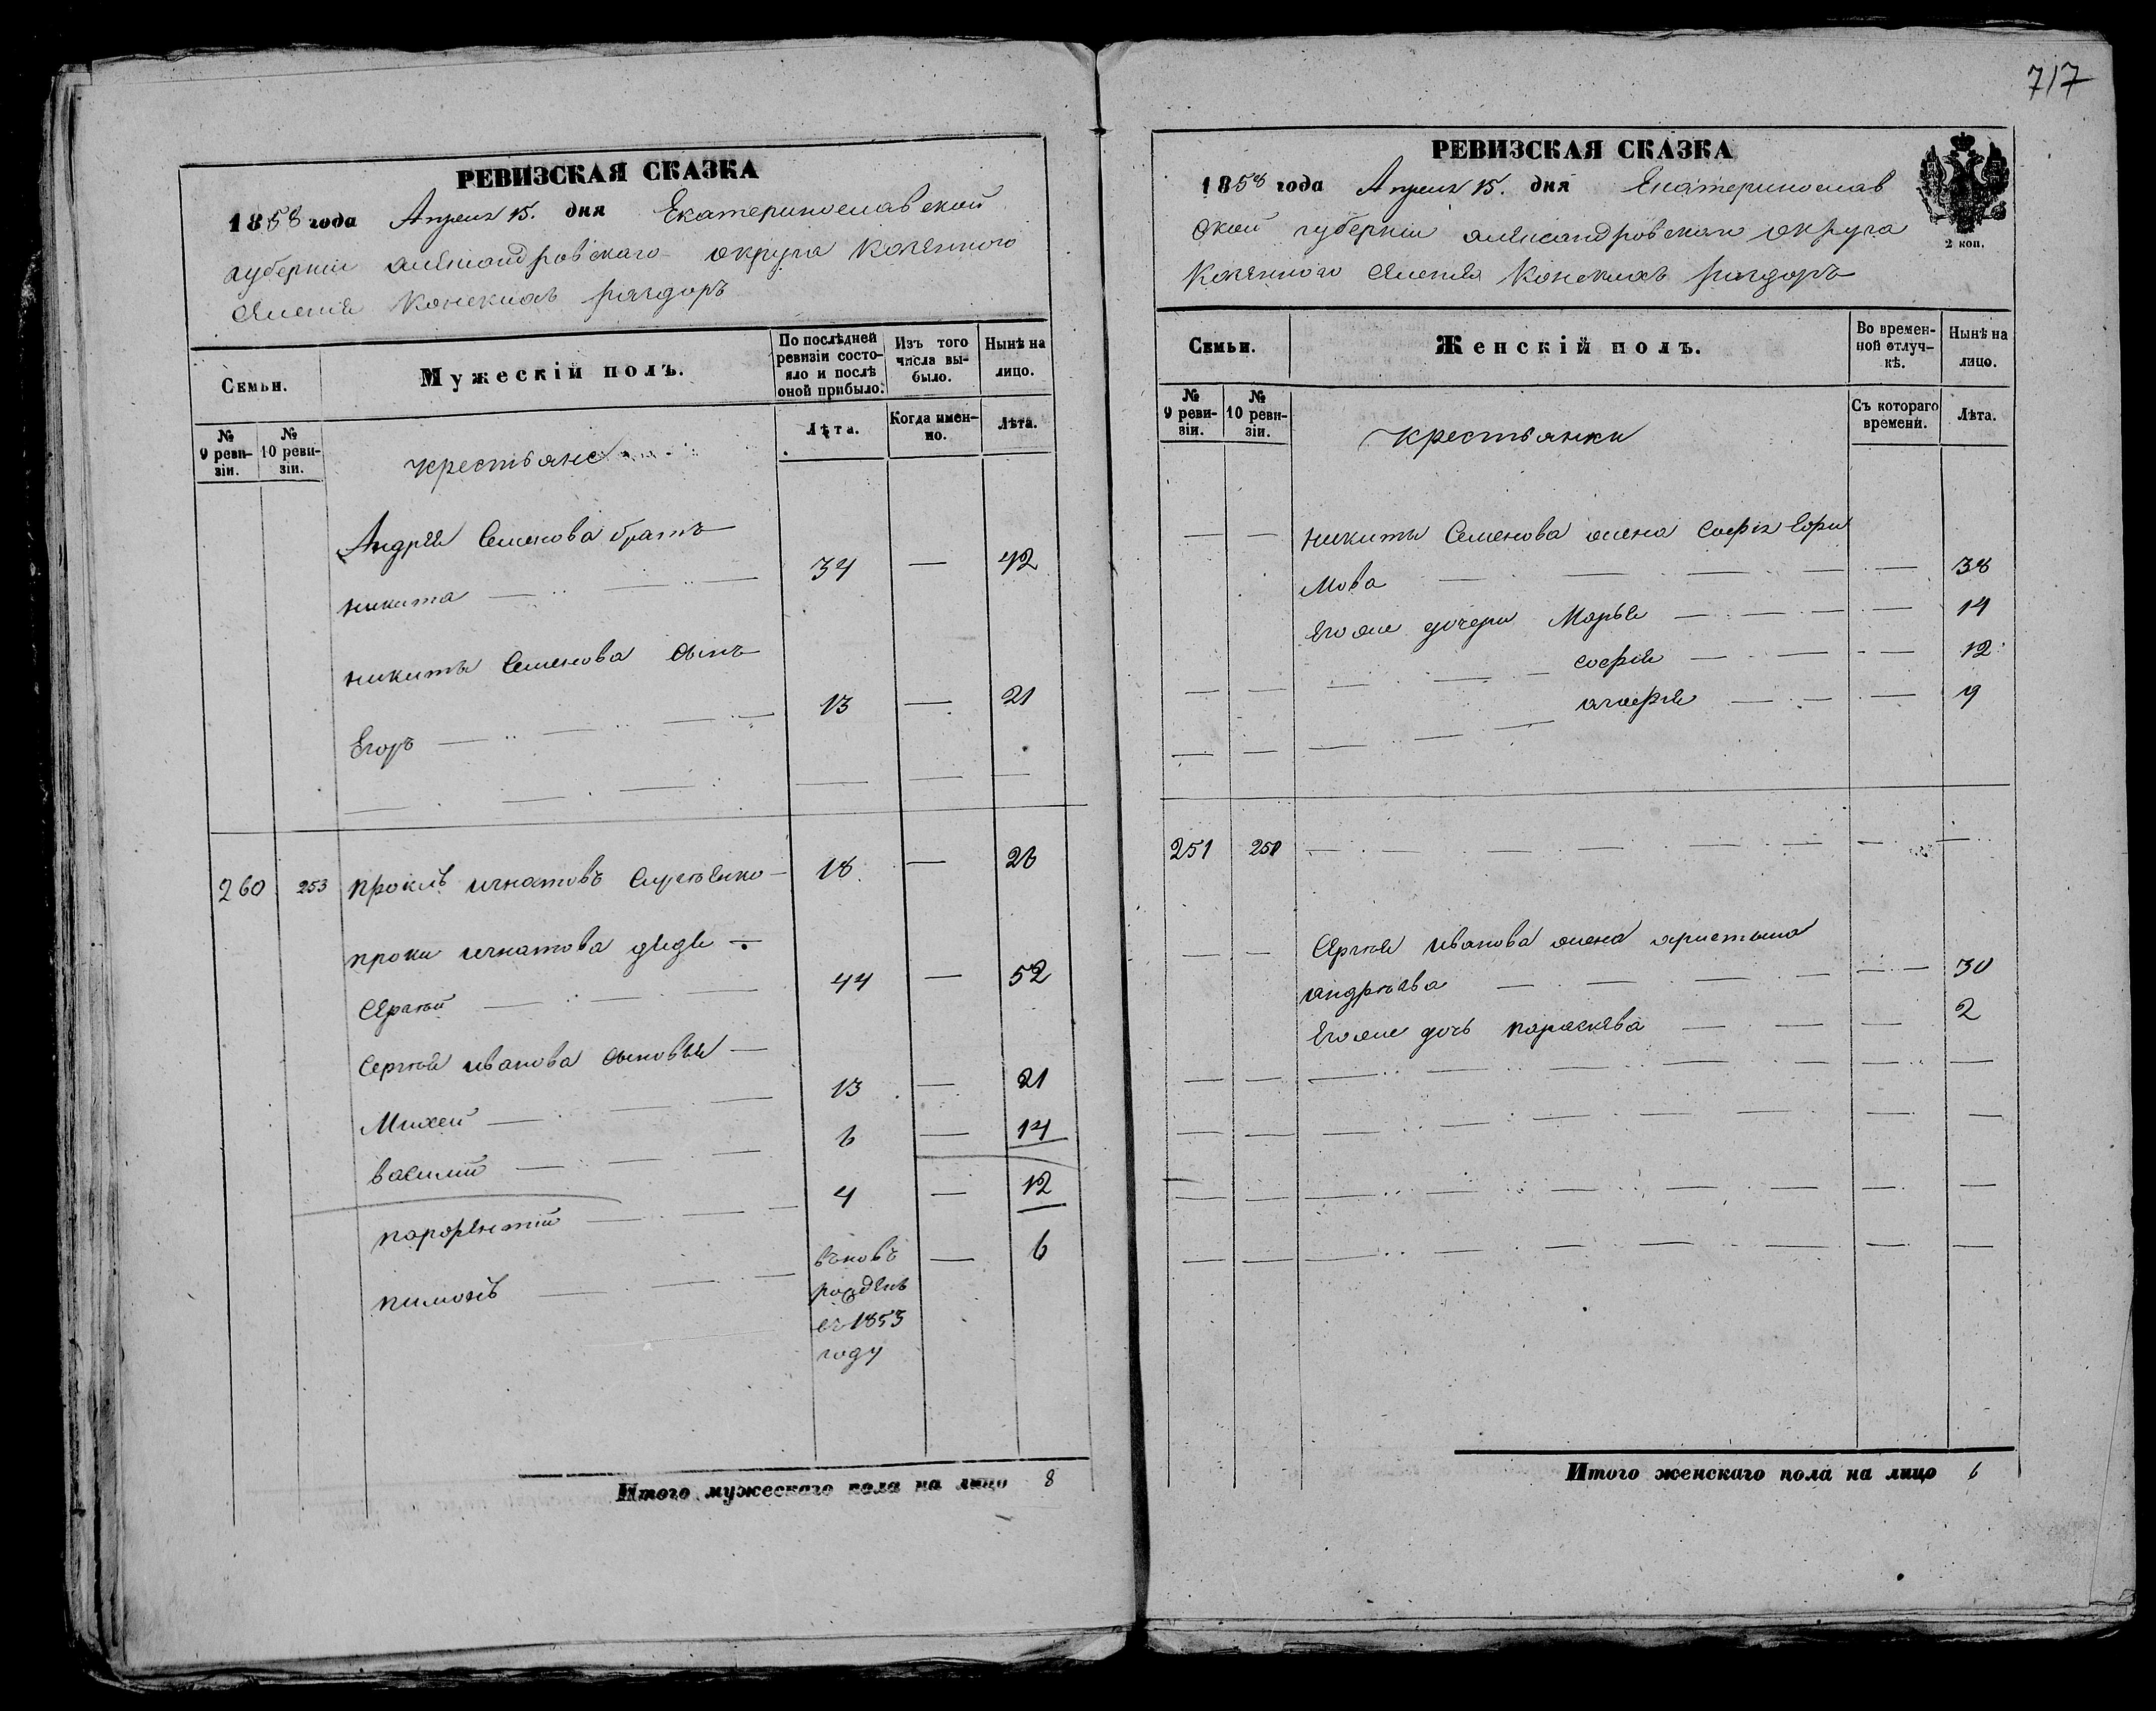 717
РЕВИЗСКАЯ СКАЗКА
1858 года Апреля 15. дня Екатеринославской
губерніи александровского округа Казенного
Селенія Конскихъ раздоръ
Семьи.
Мужескій полъ.
По послѣдней ревизіи состояло и послѣ оной прибыло.
Изъ того числа выбыло.
Нынѣ на лицо.
№ 9 ревизіи.
№ 10 ревизіи.
крестьяне
Лѣта.
Когда именно.
Лѣта.
Андрея Семенова братъ
никита 34 — 42
никиты Семенова сынъ
Егоръ 13 — 21
260 253 прокпъ игнатовъ 18 — 26
проки игнатова дядя
Сергей 44 — 52
Сергея иванова сыновья
Михей 13 — 21
василий 6 — 14
парфентий 4 — 12
пимонъ вновь рожденъ въ 1853 году — 6
Итого мужескаго пола на лицо 8
РЕВИЗСКАЯ СКАЗКА
1858 года Апреля 15. дня Екатеринослав
ской губерніи александровскаго округа
Казенного Селенія Конскихъ раздоръ
2 коп.
Семьи.
Женскій полъ.
Во временной отлучкѣ.
Нынѣ на лицо.
№ 9 ревизіи.
№ 10 ревизіи.
крестьянки
Съ котораго времени.
Лѣта.
никиты Семенова жена Софія Ефи
мова — 38
Его же дочери Марья — 14
софія — 12
агафія — 9
251 251
Сергея иванова жена христина
андреева — 30
Его же дочь параскева — 2
Итого женскаго пола на лицо 6